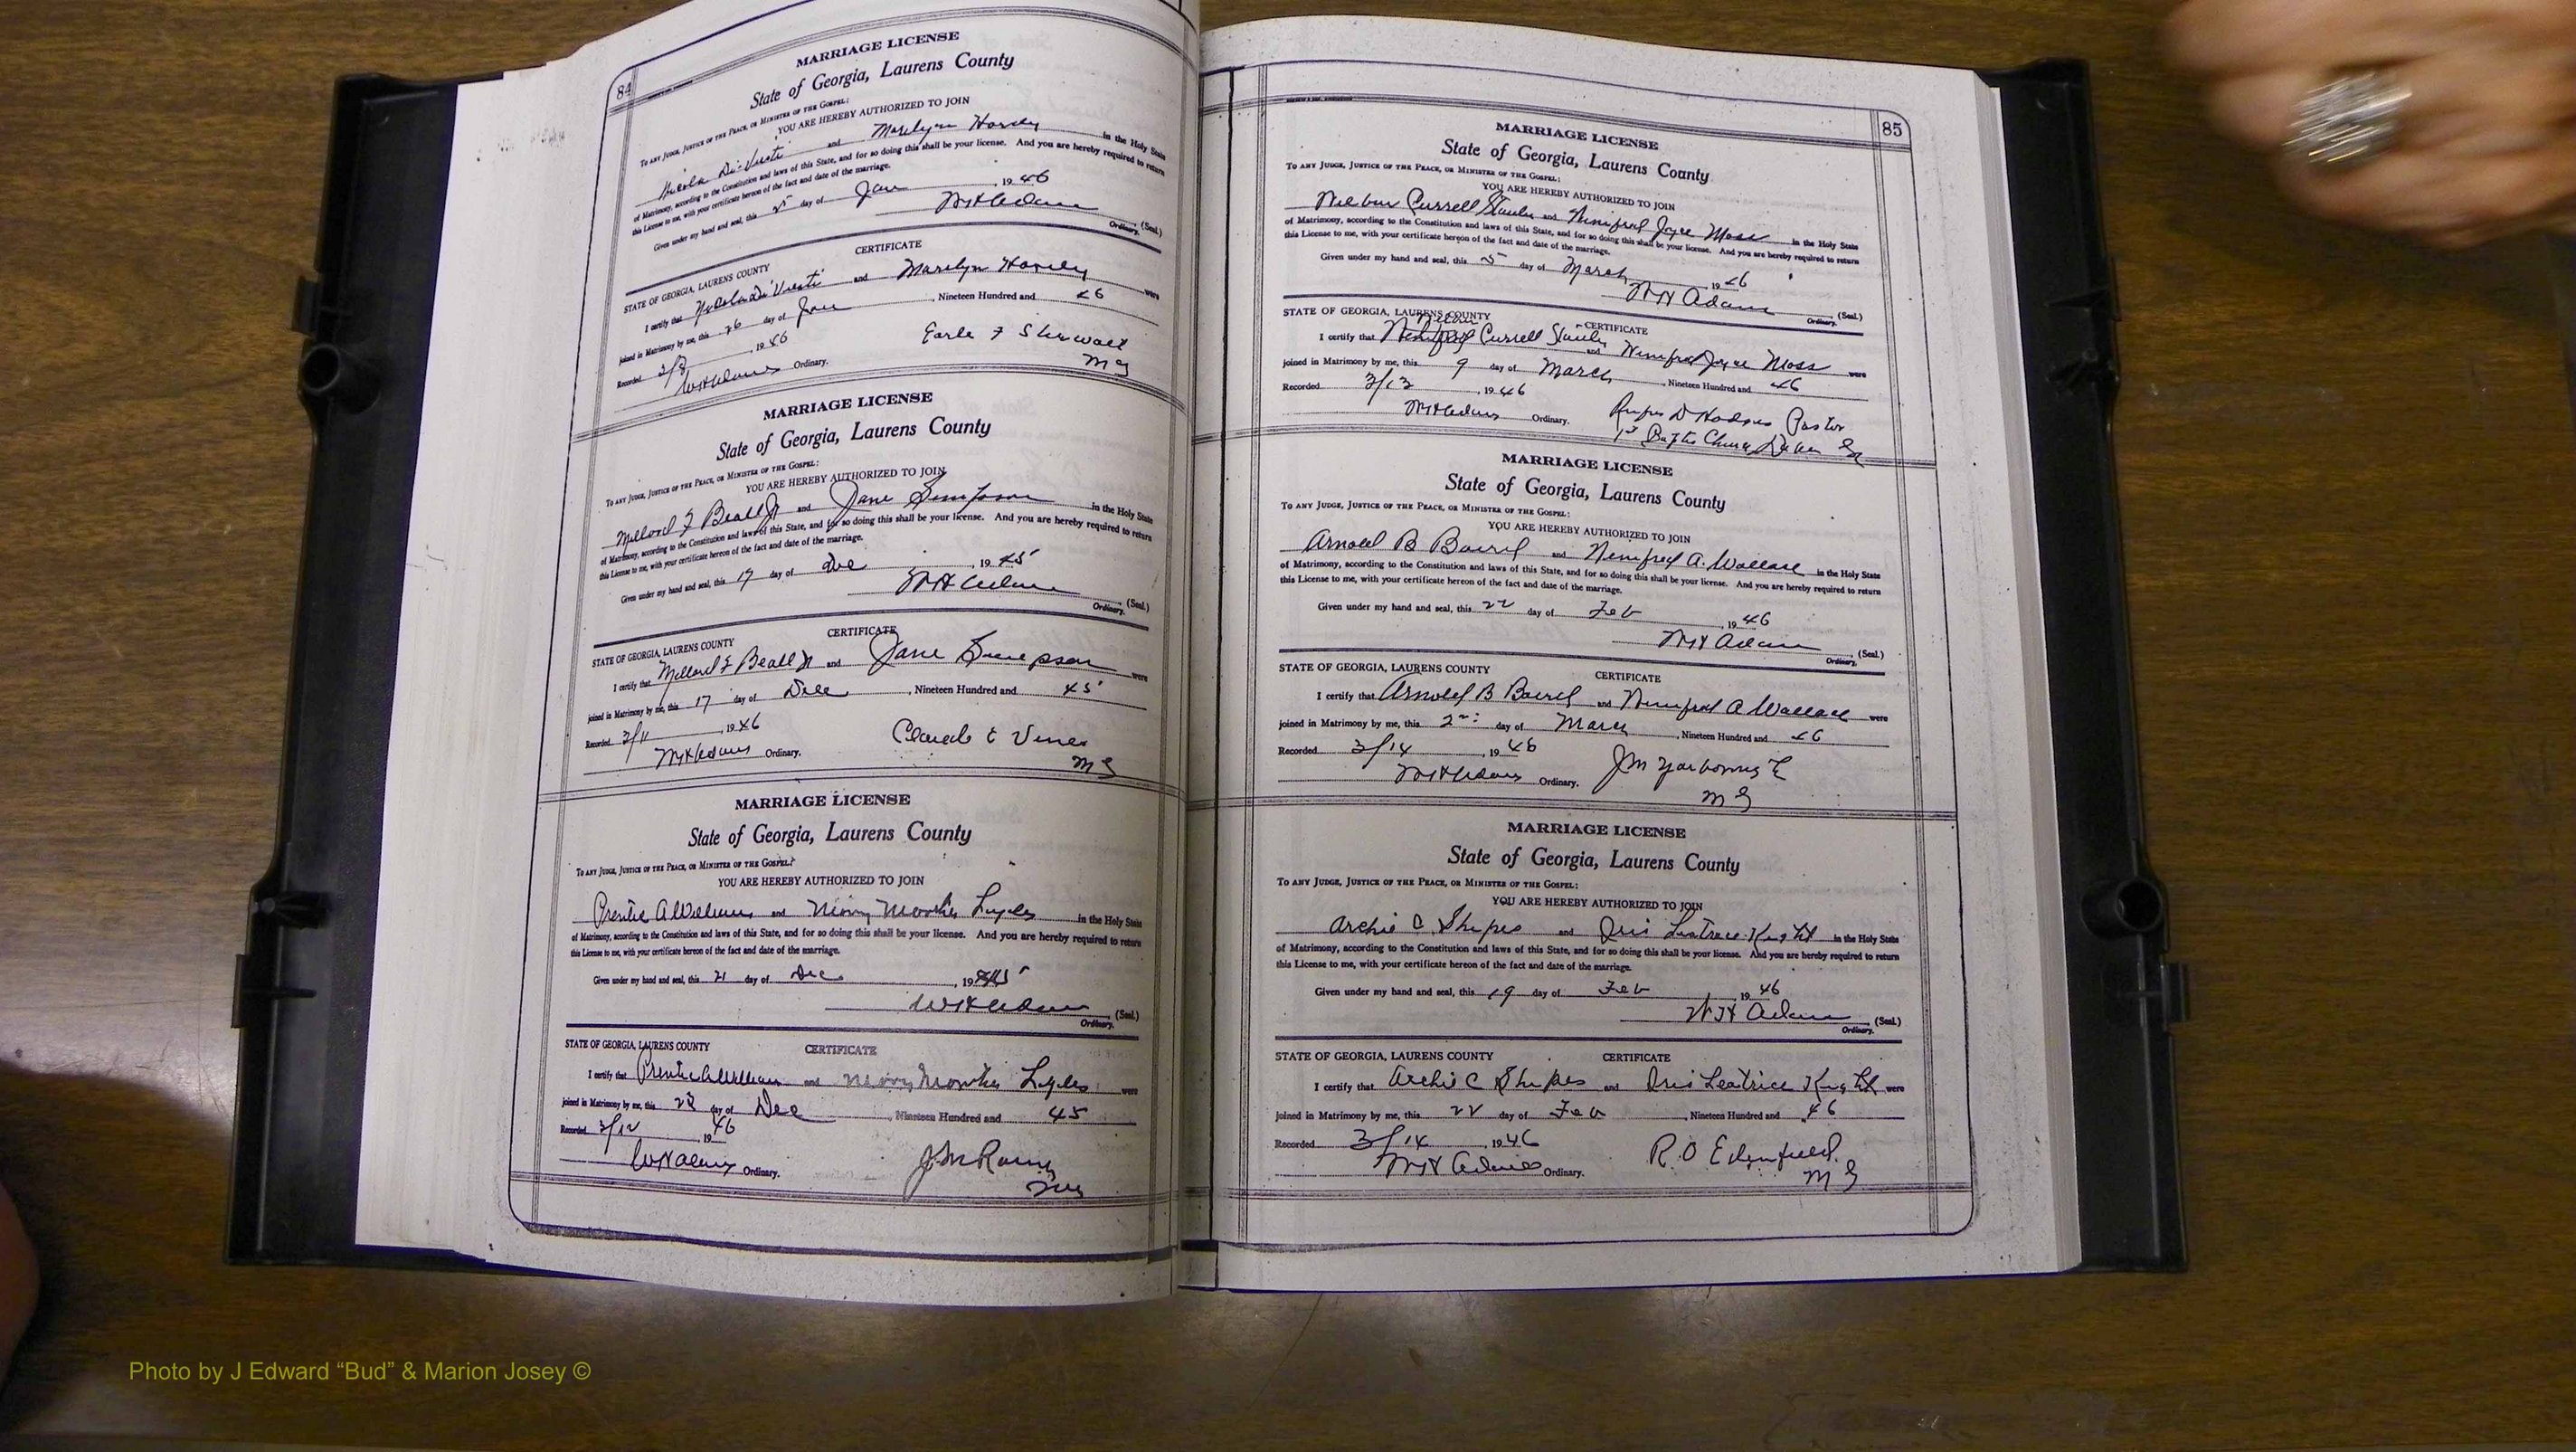 84
MARRIAGE LICENSE
State of Georgia, Laurens County
To any Judge, Justice of the Peace, or Minister of the Gospel:
YOU ARE HEREBY AUTHORIZED TO JOIN
and Marilyn in the Holy State
of Matrimony, according to the Constitution and laws of this State, and for so doing this shall be your license. And you are hereby required to return
this License to me, with your certificate hereon of the fact and date of the marriage.
Given under my hand and seal, this 25 day of Jan, 1946
W H Adams (Seal.)
Ordinary.
CERTIFICATE
STATE OF GEORGIA, LAURENS COUNTY
I certify that and Marilyn were
joined in Matrimony by me, this 26 day of Jan, Nineteen Hundred and 46
Recorded 3/8, 1946 Earle F Stewart
W H Adams Ordinary. M G
MARRIAGE LICENSE
State of Georgia, Laurens County
To any Judge, Justice of the Peace, or Minister of the Gospel:
YOU ARE HEREBY AUTHORIZED TO JOIN
Millard F Beall Jr and Jane Simpson in the Holy State
of Matrimony, according to the Constitution and laws of this State, and for so doing this shall be your license. And you are hereby required to return
this License to me, with your certificate hereon of the fact and date of the marriage.
Given under my hand and seal, this 17 day of Dec, 1945
W H Adams (Seal.)
Ordinary.
CERTIFICATE
STATE OF GEORGIA, LAURENS COUNTY
I certify that Millard F Beall Jr and Jane Simpson were
joined in Matrimony by me, this 17 day of Dec, Nineteen Hundred and 45
Recorded 3/11, 1946 Claude E Vines
W H Adams Ordinary. M G
MARRIAGE LICENSE
State of Georgia, Laurens County
To any Judge, Justice of the Peace, or Minister of the Gospel:
YOU ARE HEREBY AUTHORIZED TO JOIN
A Williams and in the Holy State
of Matrimony, according to the Constitution and laws of this State, and for so doing this shall be your license. And you are hereby required to return
this License to me, with your certificate hereon of the fact and date of the marriage.
Given under my hand and seal, this 21 day of Dec, 1945
W H Adams (Seal.)
Ordinary.
STATE OF GEORGIA, LAURENS COUNTY CERTIFICATE
I certify that A William and Lyles were
joined in Matrimony by me, this 23 day of Dec, Nineteen Hundred and 45
Recorded 3/12, 1946
W H Adams Ordinary. J. M
85
MARRIAGE LICENSE
State of Georgia, Laurens County
To any Judge, Justice of the Peace, or Minister of the Gospel:
YOU ARE HEREBY AUTHORIZED TO JOIN
Wilbur Currell and Winifred Joyce Moss in the Holy State
of Matrimony, according to the Constitution and laws of this State, and for so doing this shall be your license. And you are hereby required to return
this License to me, with your certificate hereon of the fact and date of the marriage.
Given under my hand and seal, this 5 day of March, 1946
W H Adams (Seal.)
Ordinary.
STATE OF GEORGIA, LAURENS COUNTY CERTIFICATE
I certify that Wilbur Currell and Winifred Joyce Moss were
joined in Matrimony by me, this 9 day of March, Nineteen Hundred and 46
Recorded 3/13, 1946 Rufus D Hodges Pastor
W H Adams Ordinary. 1st Church
MARRIAGE LICENSE
State of Georgia, Laurens County
To any Judge, Justice of the Peace, or Minister of the Gospel:
YOU ARE HEREBY AUTHORIZED TO JOIN
Arnold B and Winifred A. Wallace in the Holy State
of Matrimony, according to the Constitution and laws of this State, and for so doing this shall be your license. And you are hereby required to return
this License to me, with your certificate hereon of the fact and date of the marriage.
Given under my hand and seal, this 22 day of Feb, 1946
W H Adams (Seal.)
Ordinary.
STATE OF GEORGIA, LAURENS COUNTY CERTIFICATE
I certify that Arnold B and Winifred A Wallace were
joined in Matrimony by me, this 2nd day of March, Nineteen Hundred and 46
Recorded 3/14, 1946 J M
W H Adams Ordinary. M G
MARRIAGE LICENSE
State of Georgia, Laurens County
To any Judge, Justice of the Peace, or Minister of the Gospel:
YOU ARE HEREBY AUTHORIZED TO JOIN
Archie C Shepes and Iris Leatrice Knight in the Holy State
of Matrimony, according to the Constitution and laws of this State, and for so doing this shall be your license. And you are hereby required to return
this License to me, with your certificate hereon of the fact and date of the marriage.
Given under my hand and seal, this 19 day of Feb, 1946
W H Adams (Seal.)
Ordinary.
STATE OF GEORGIA, LAURENS COUNTY CERTIFICATE
I certify that Archie C and Iris Leatrice Knight were
joined in Matrimony by me, this 22 day of Feb, Nineteen Hundred and 46
Recorded 3/14, 1946 R. O Edenfield.
W H Adams Ordinary. M G
Photo by J Edward “Bud” & Marion Josey ©